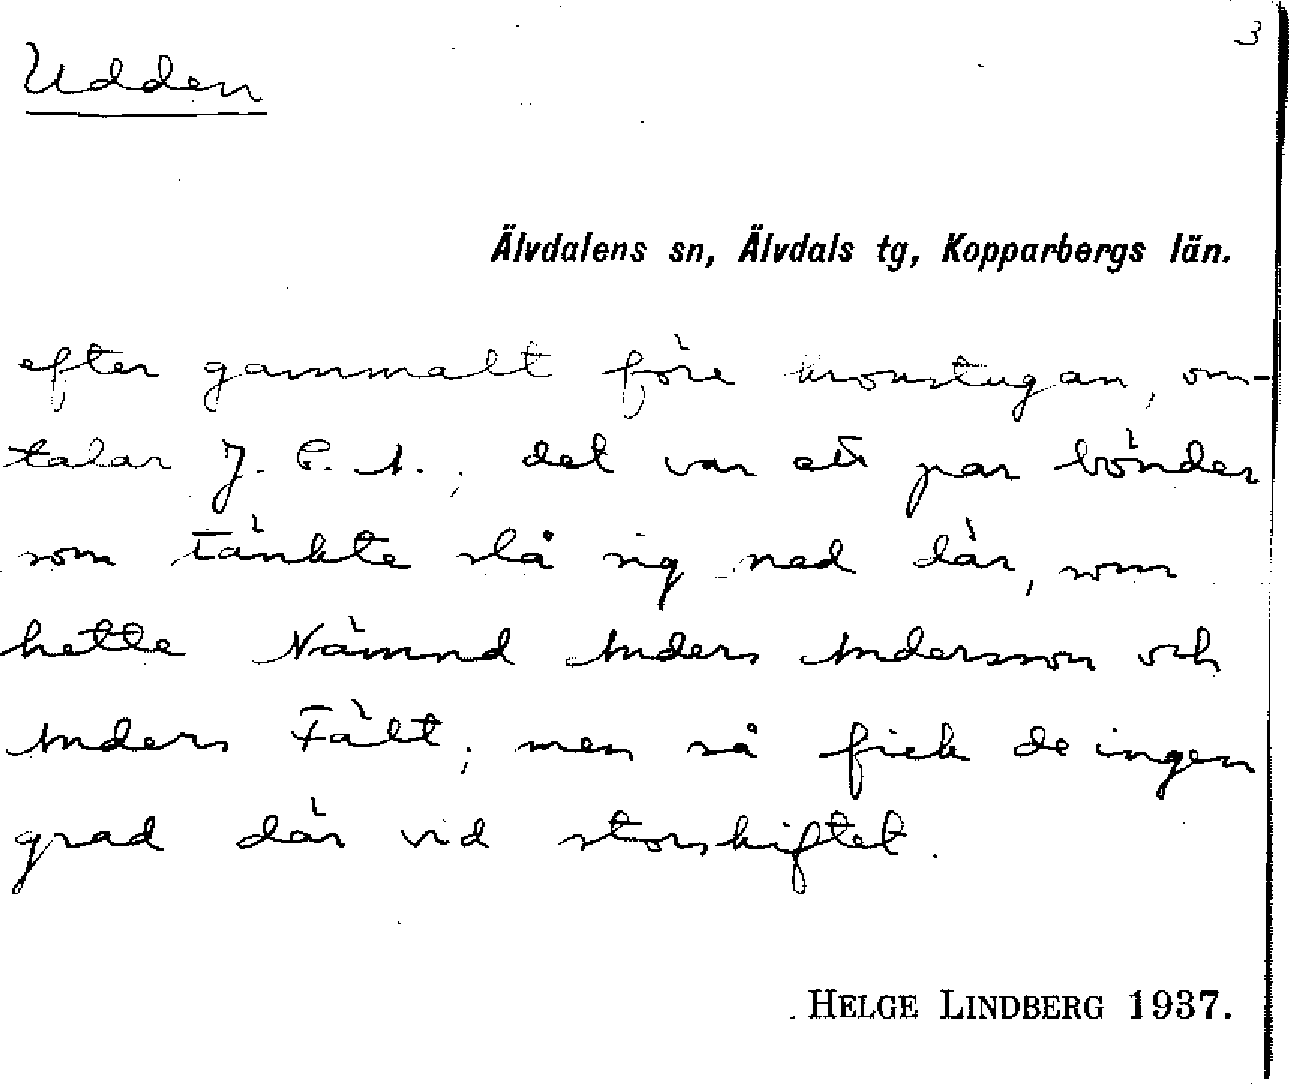 3
Udden
Älvdalens sn, Älvdals tg, Kopparbergs län.
efter gammalt före kronstugan, om-
talar J. P. A., det var ett par bönder
som tänkte slå sig ned där, som
hette Nämnd Anders Andersson och
Anders Fält, men så fick de ingen
grad där vid storskiftet.
HELGE LINDBERG 1937.